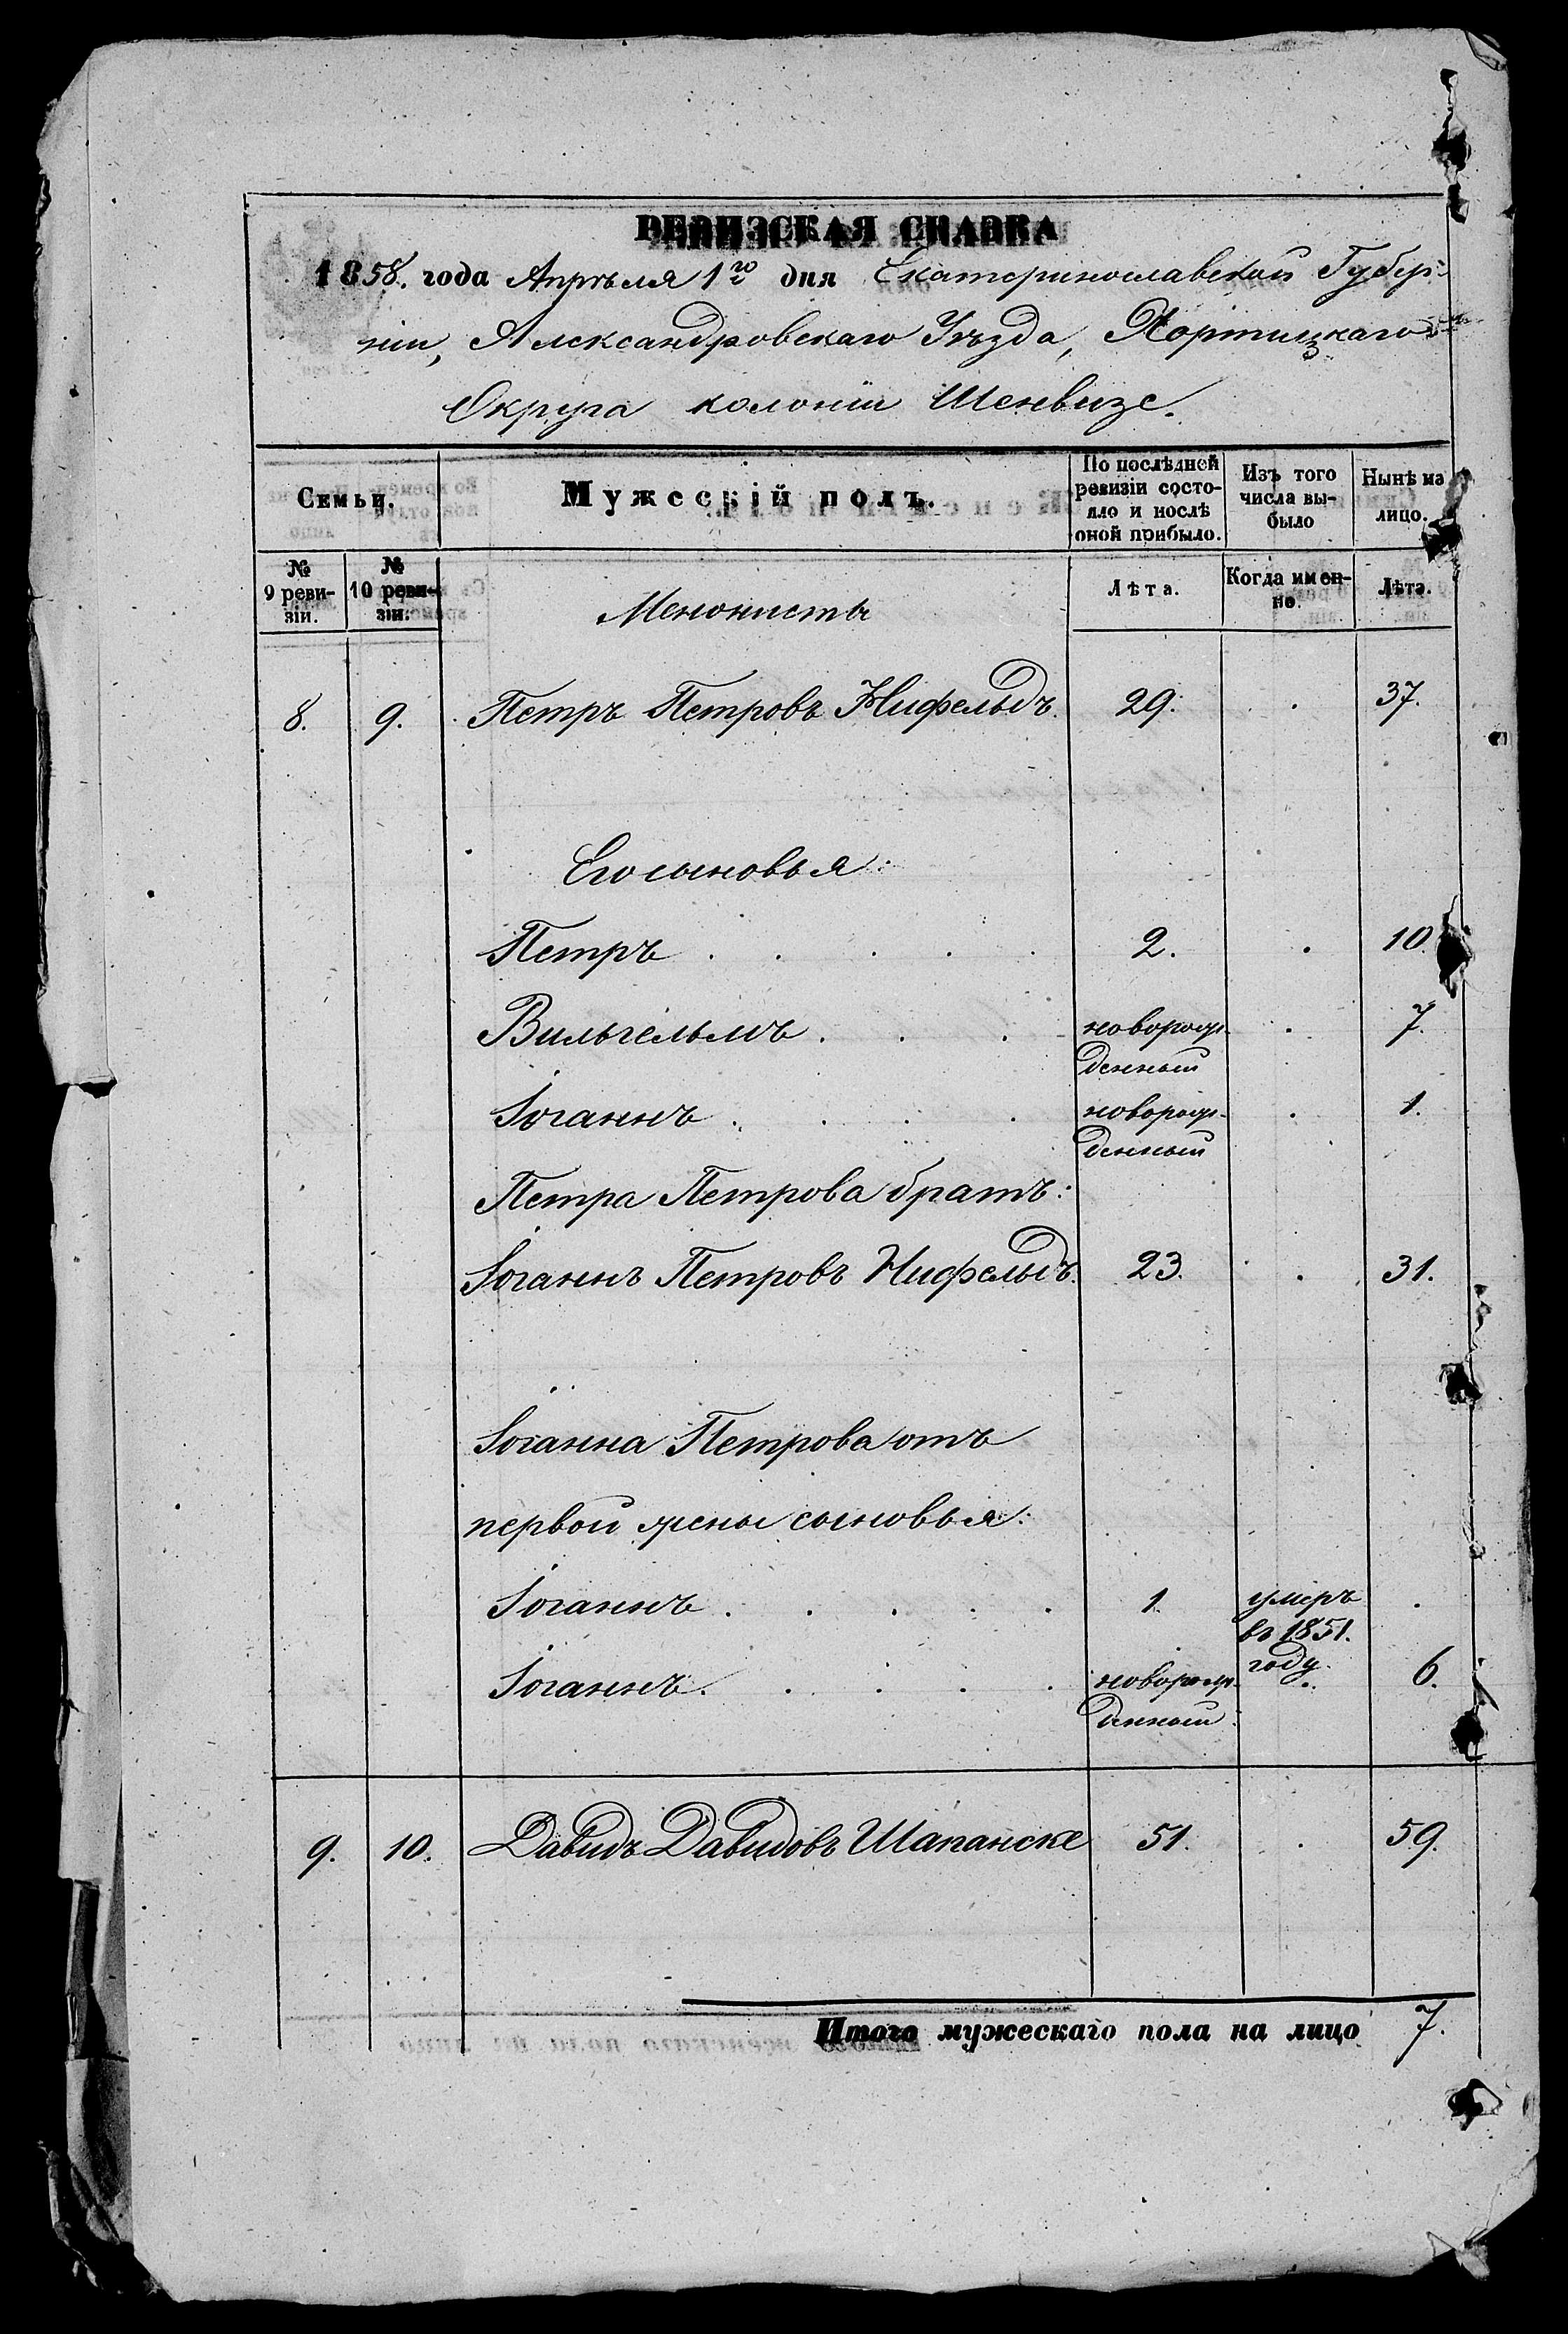 РЕВИЗСКАЯ СКАЗКА
1858. года Апрѣля 1го дня Екатеринославской Губер-
ніи, Александровскаго Уѣзда, Хортицкаго
Округа колоніи Шенвизе.
Семьи. Мужескій полъ. По послѣдней ревизіи состояло и послѣ оной прибыло. Изъ того числа выбыло Нынѣ на лицо.
№ 9 ревизіи. № 10 ревизіи. Лѣта. Когда именно. Лѣта.
Менонисты
8. 9. Петръ Петровъ Нифельдъ. 29. 37.
Его сыновья:
Петръ 2. 10.
Вильгельмъ новорож-
денный 7.
Іоганнъ новорож-
денный 1.
Петра Петрова братъ:
Іоганнъ Петровъ Нифельдъ. 23. 31.
Іоганна Петрова отъ
первой жены сыновья:
Іоганнъ 1. умеръ
въ 1851.
году.
Іоганнъ новорож-
денный 6.
9. 10. Давидъ Давидовъ Шапанске 51. 59.
Итого мужескаго пола на лицо 7.